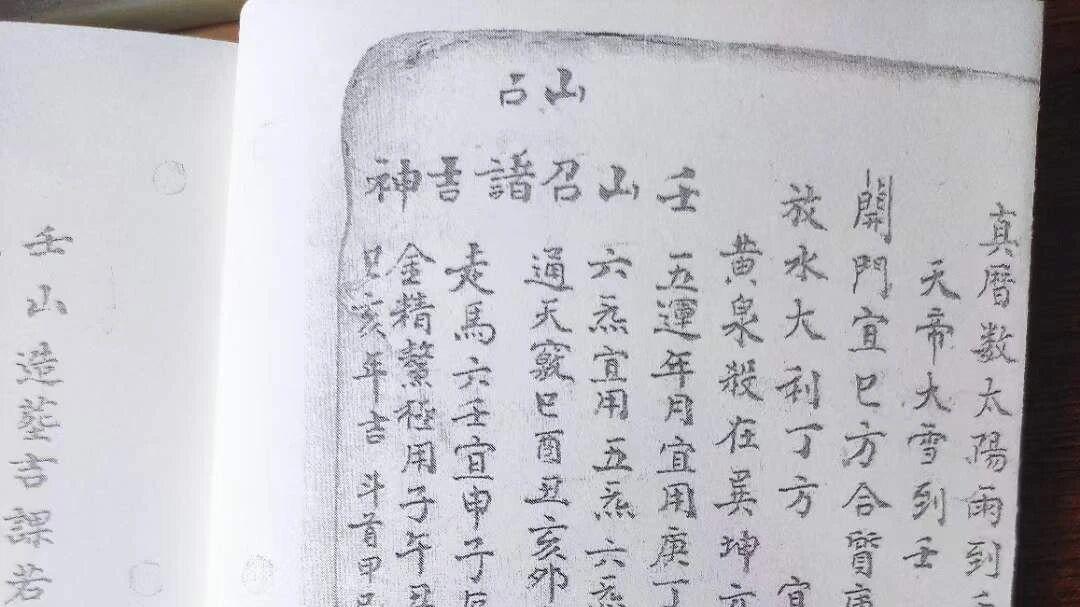 真曆数太陽雨到
天帝大雪到壬
開門宜巳方合質庚
放水大利丁方 宜
黄泉殺在巽坤
山占
壬山召諸吉神
五運年月宜用庚丁
六炁宜用五炁六炁
通天竅巳酉丑亥卯
走馬六壬宜申子辰
金精鰲極用子午丑
巳亥年吉 斗首甲
壬山造塟吉課若